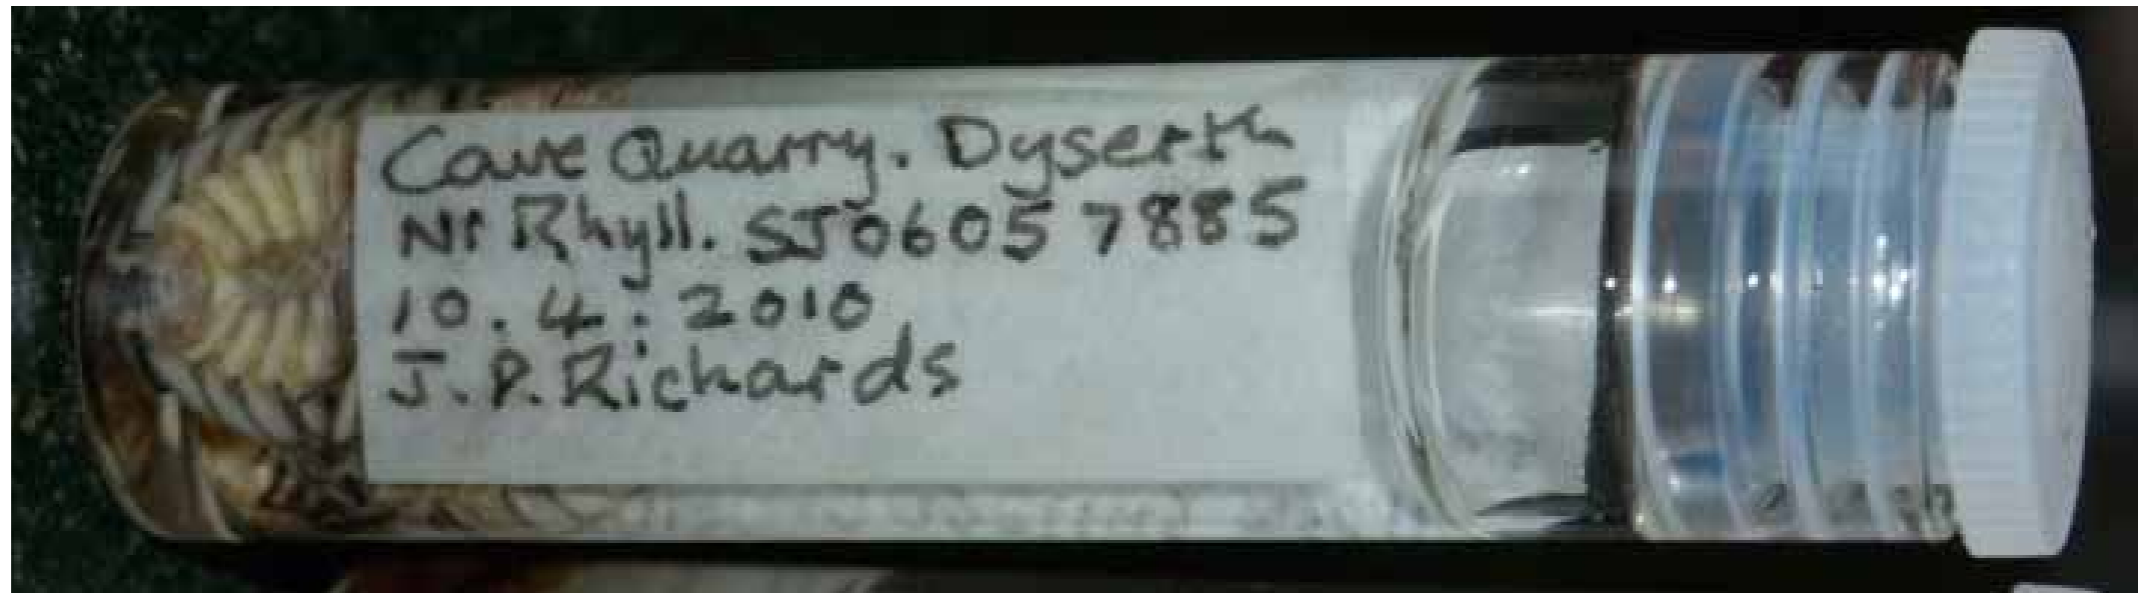 Cave Quarry. Dyserth
Nr Rhyll. SJ0605 7885
10.4.2010
J.P.Richards